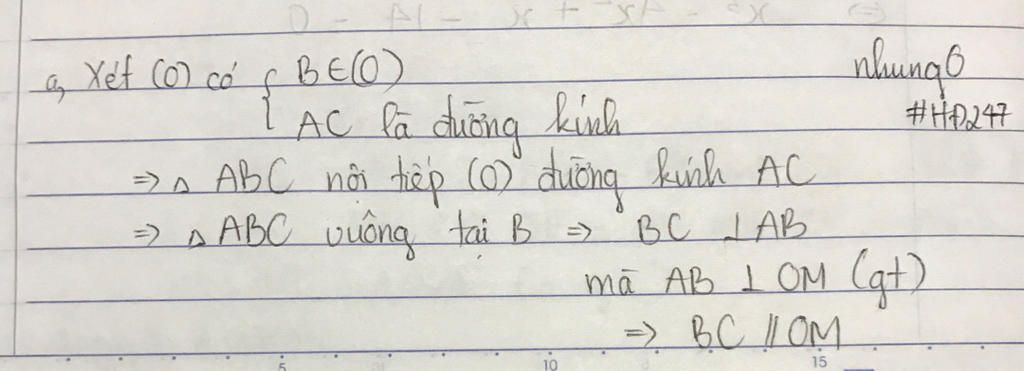 a, Xét (O) có { B ∈ (O)
AC là đường kính
nhung6
#HĐ247
=> △ ABC nội tiếp (O) đường kính AC
=> △ ABC vuông tại B => BC ⊥ AB
mà AB ⊥ OM (gt)
=> BC // OM
5 10 15